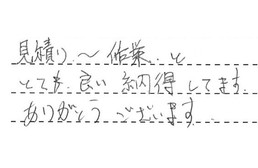 見積り〜作業.と
とても.良い納得してます.
ありがとうございます.